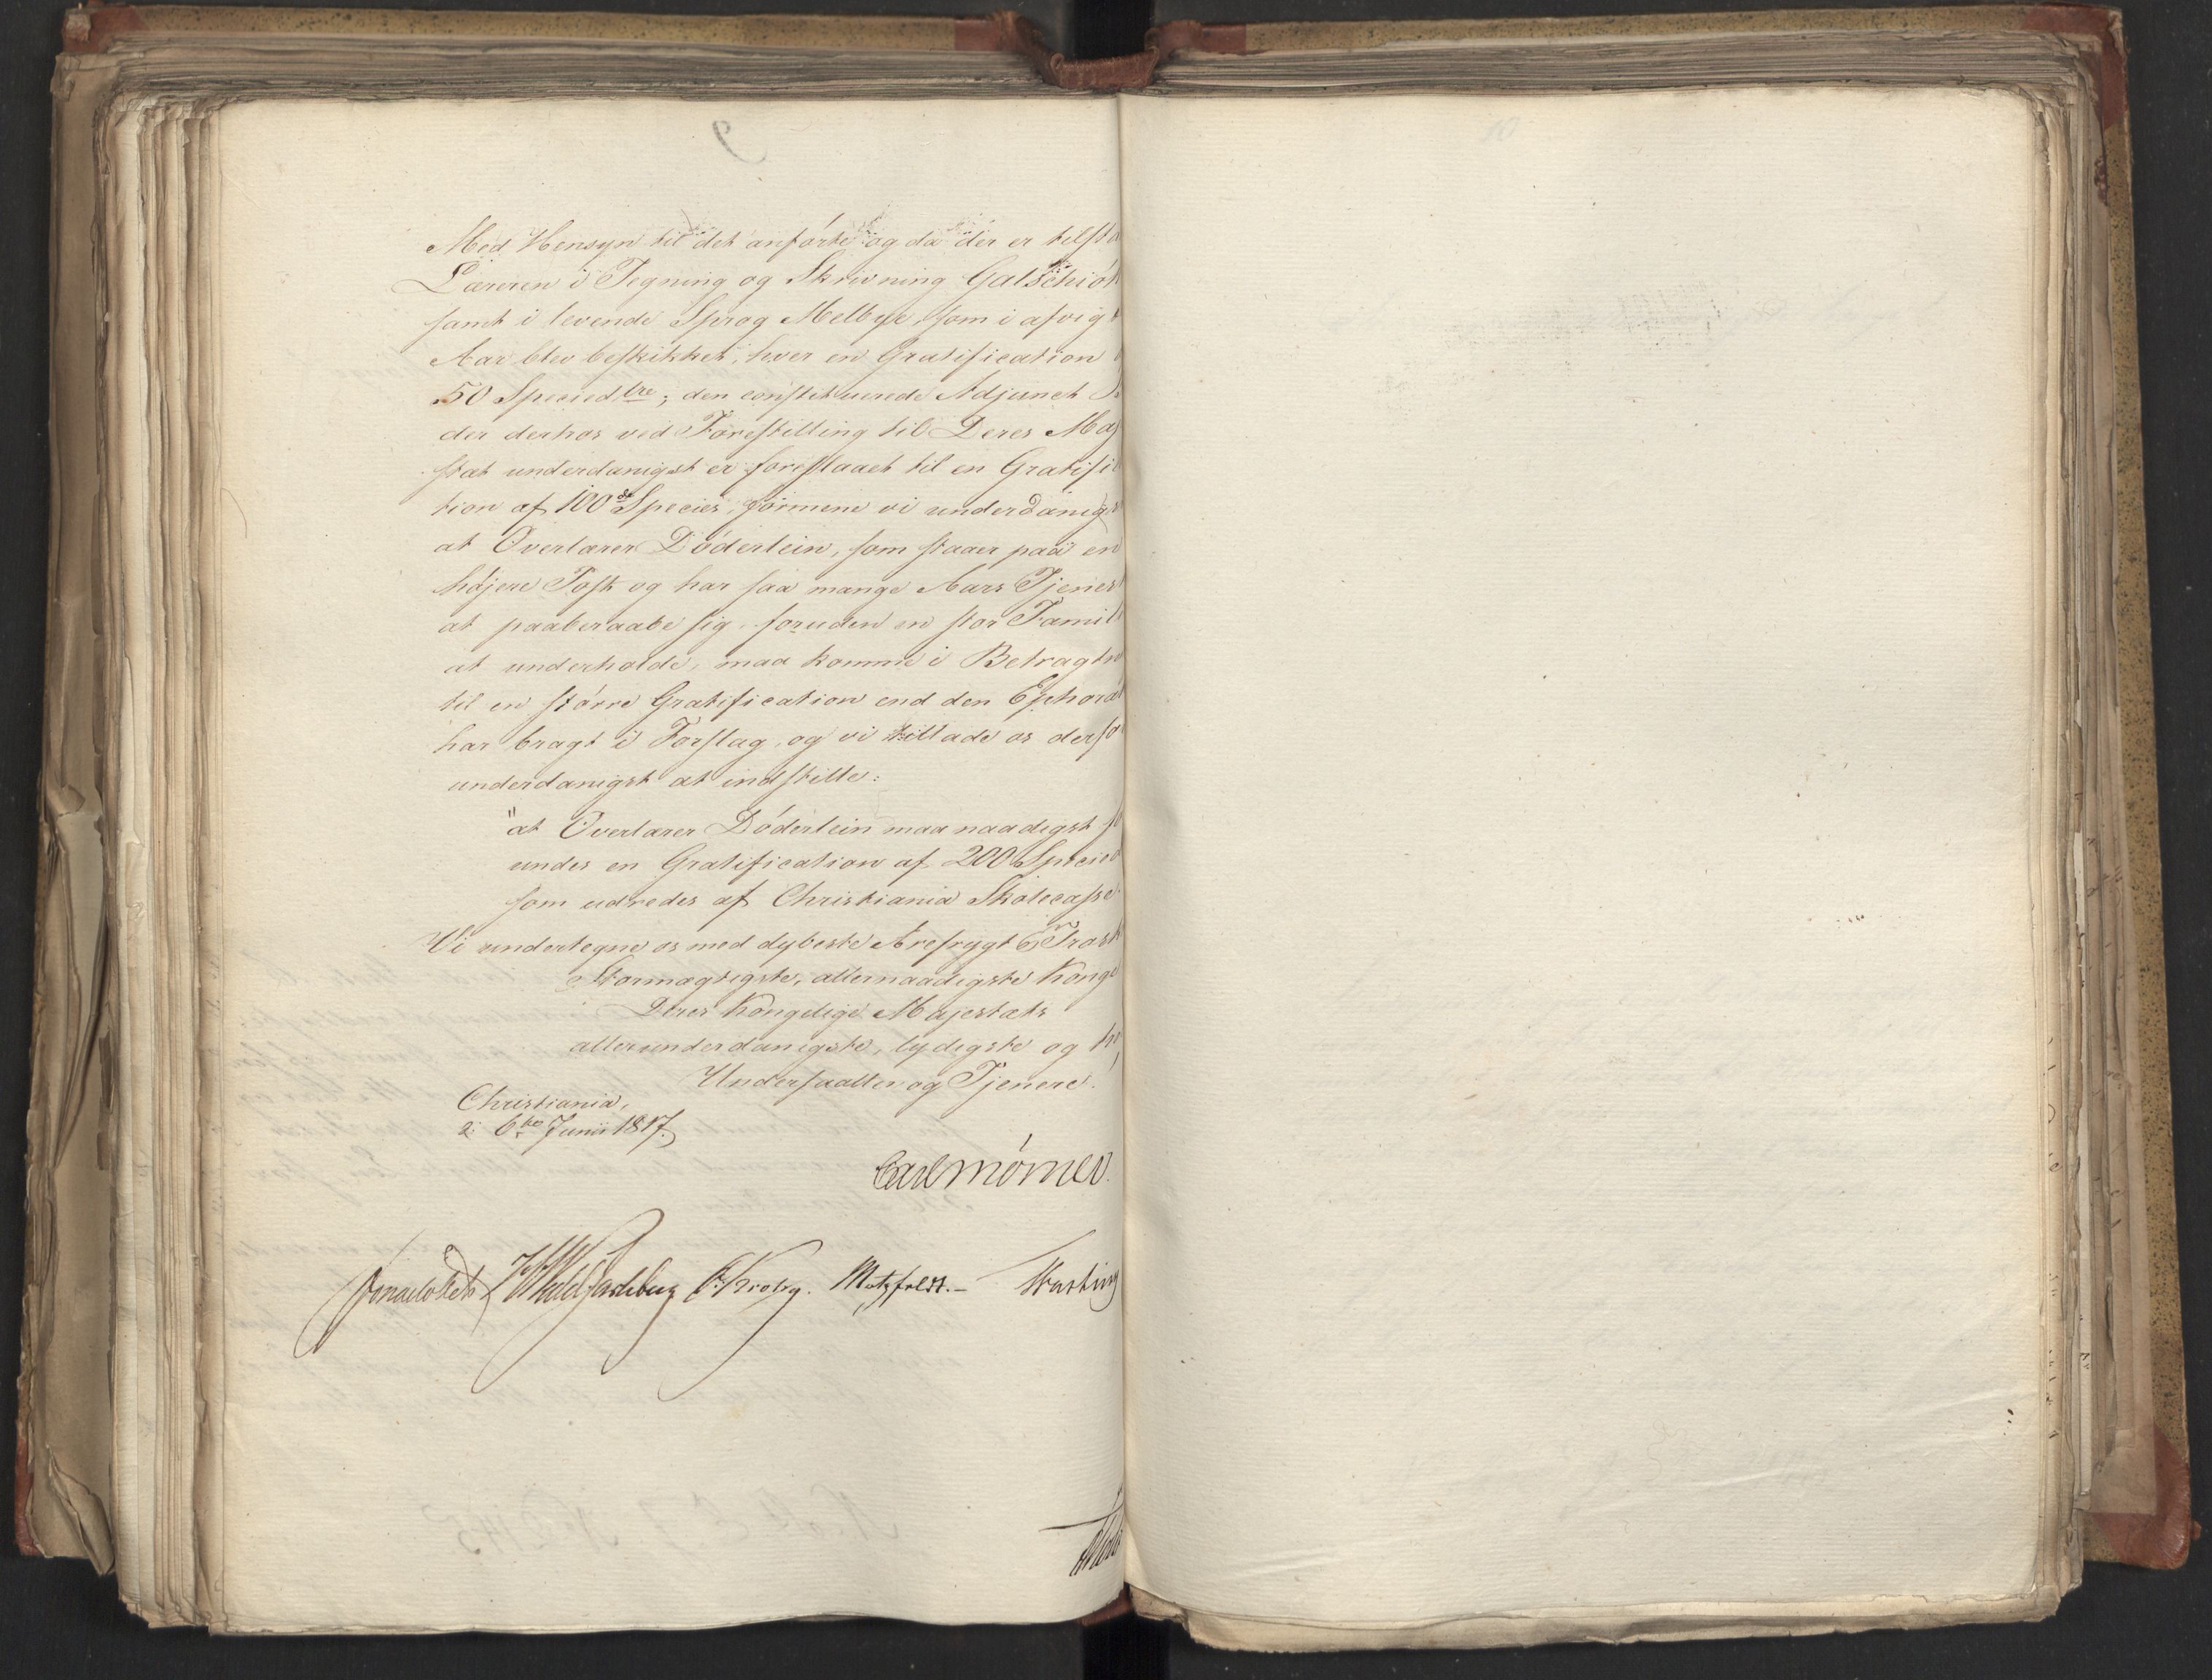 9
Med Hensyn til det anførte og da der er tilsta
Læreren i Tegning og Skrivning Galschiøt
samt i levende Sprog Melbye, som i afvigt
Aar blev beskikket, hver en Gratification
50 Speciedlre; den constituerede Adjunct
der derhos ved Forestilling til Deres Maj
stæt underdanigst er foreslaaet til en Gratifi
tion af 100 de Species, formene vi underdanigs
at Overlærer Döderlein, som staaer paa en
højere Post og har saa mange Aars Tjenest
at paaberaabe sig, foruden en stor Famili
at underholde, maa komme i Betragtn
til en større Gratification end den Ephorat
har bragt i Forslag, og vi tillade os derfo
underdanigst at indstille:
"at Overlærer Döderlein maa naadigst
undes en Gratification af 200 Specied
som udredes af Christiania Skolecasse.
Vi undertegne os med dybeste Ærefrygt & Trosk
Stormægtigste, allernaadigste Konge
Deres Kongelige Majestæts
allerunderdanigste, lydigste og tr
Undersaatter og Tjenere.
Christiania,
d: 6te Junii 1817.
Carl Mörner.
Krohg. Motzfeldt.–
10